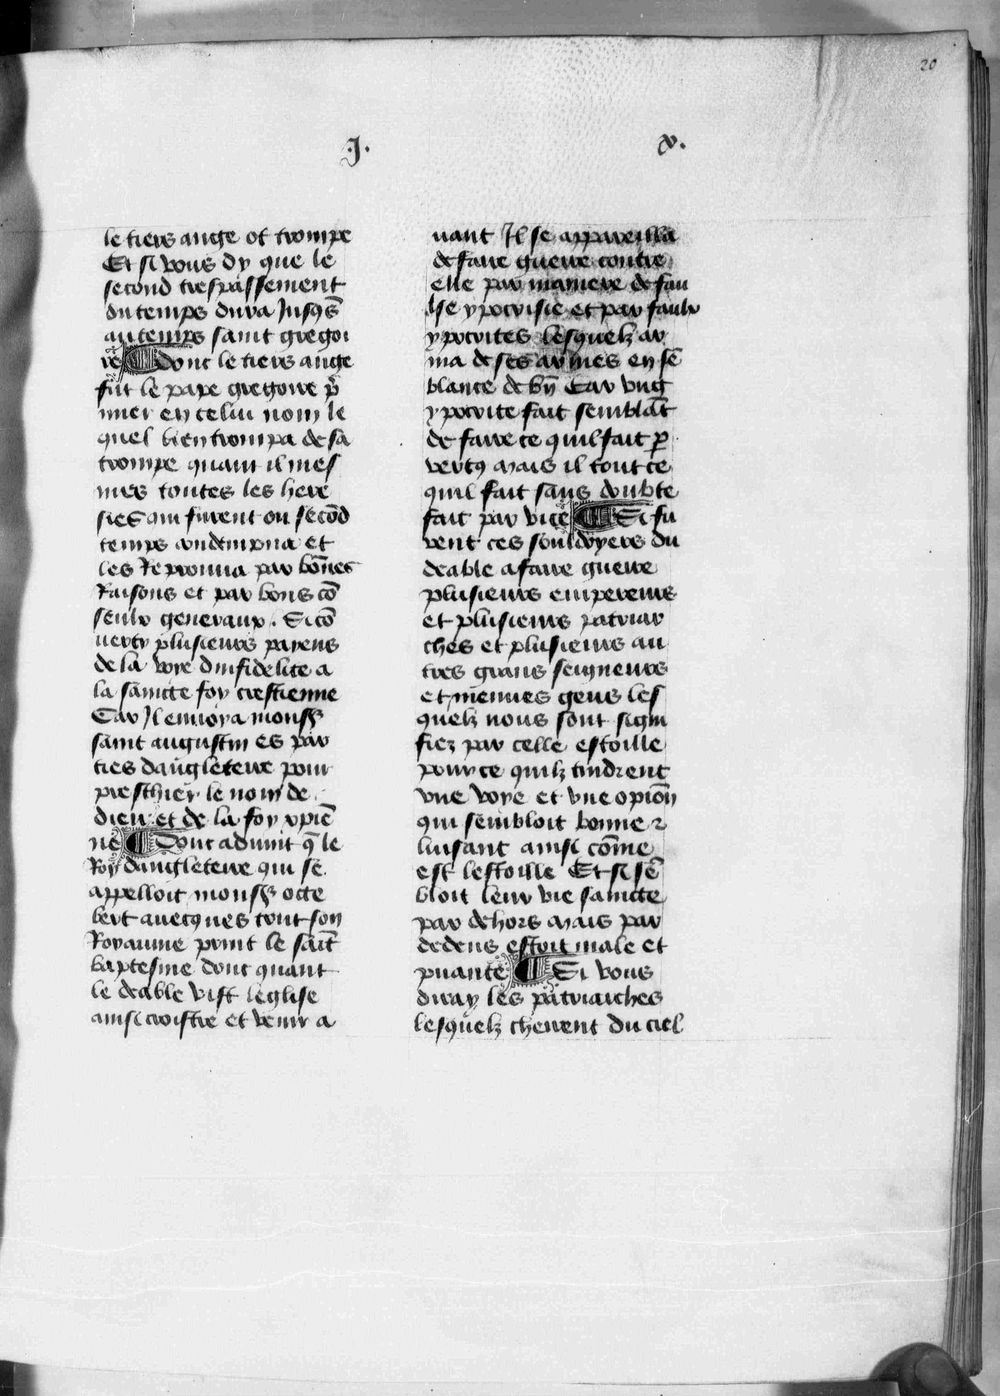 20
.J. x.
le tiers ange ot trompe
Et si vous dy que le
second trespassement
du temps dura Jusqs̃
au temps saint gregoi
re ¶ Donc le tiers ange
fut le pape gregoire p̃
mier en celui nom le
quel bien trompa de sa
trompe quant il mes
mes toutes les here
sies qui furent ou secõd
temps condempna et
les Reprouua par bõnes
Raisons et par bons cõ
seulx generaux. Si cõ
uerty plusieurs payens
de la voye dinfidelite a
la saincte foy crestienne
Car Il enuoya monss̃
saint augustin es par
ties dangleterre pour
preschier le nom de
dieu et de la foy xpiẽ
ne ¶ Donc aduint q̃ le
Roy dangleterre qui se
appelloit monss̃ octe
bert auecques tout son
Royaume print le sait̃
baptesme donc quant
le deable vist leglise
ainsi croistre et venir a
uant Il se appareilla
de faire guerre contre
elle par maniere de fau
lse ypocrisie et par faulx
ypocrites lesquelz ar
ma de ses armes en sẽ
blance de bñ Car vng
ypocrite fait semblãt
de faire ce quil fait p̲
vertq mais il tout ce
quil fait sans doubte
fait par vice ¶ Si fu
rent ces souldoyers du
deable a faire guerre
plusieurs empereurs
et plusieurs patriar
ches et plusieurs au
tres grans seigneurs
et menues gens les
quelz nous sont signi
fiez par celle estoille
pour ce quilz tindrent
vne voye et vne opiõn
qui sembloit bonne ⁊
luisant ainsi cõme
est lestoille Et si sẽ
bloit leur vie saincte
par dehors mais par
dedens estoit male et
puante ¶ Si vous
diray les patriarches
lesquelz cheurent du ciel